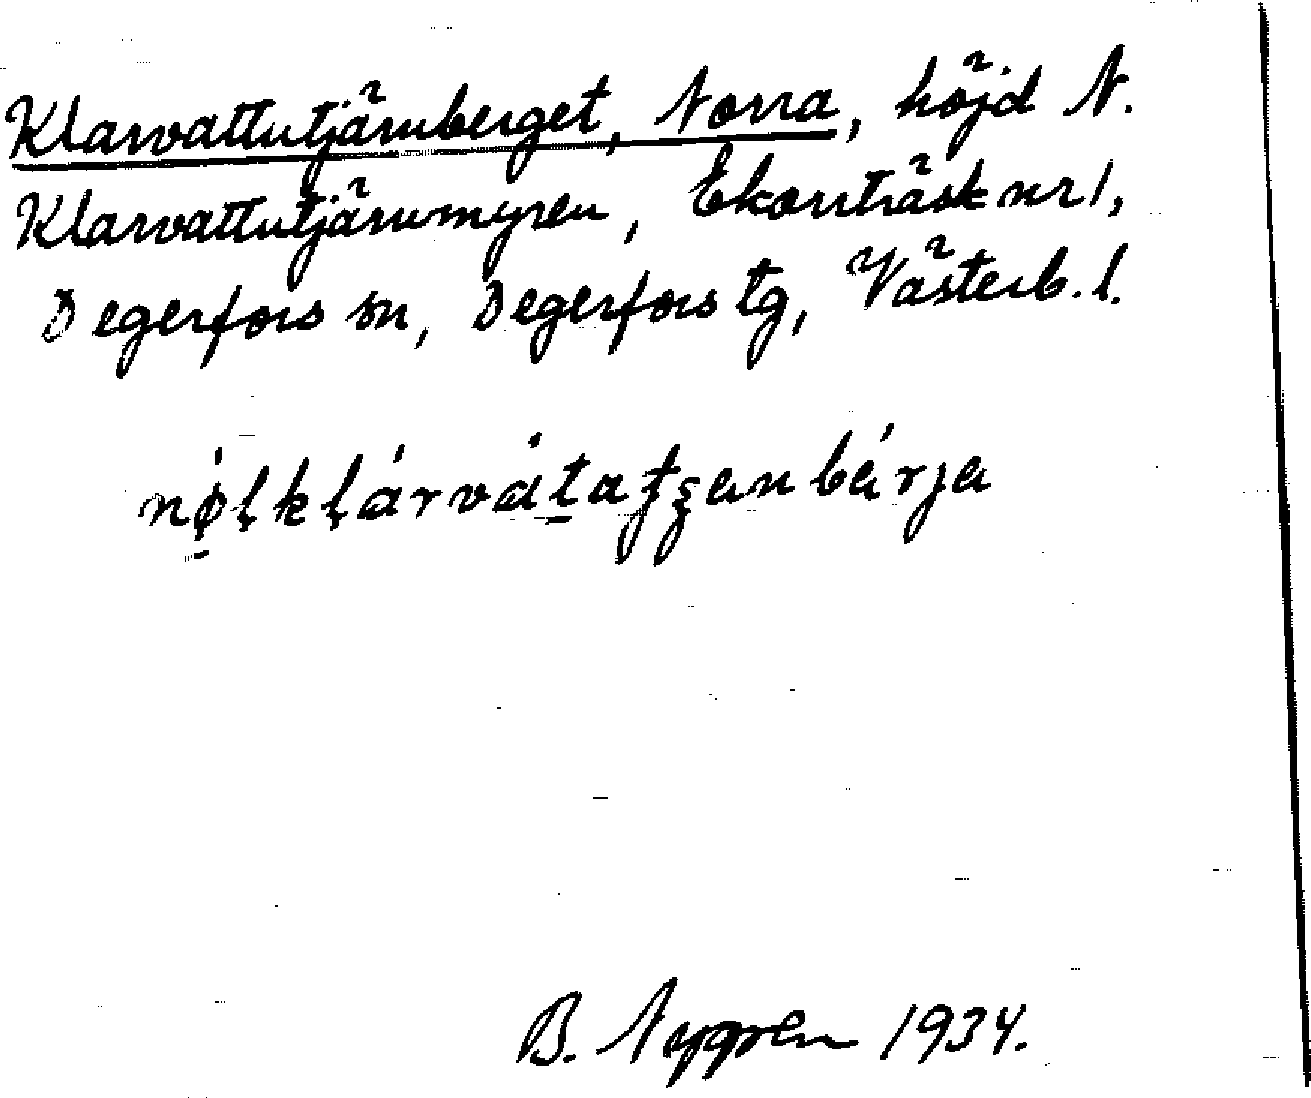 Klarvattutjärnberget, Norra, höjd N.
Klarvattutjärnmyren, Ekorrträsk nr 1,
Degerfors sn, Degerfors tg, Västerb. l.
B. Nygren 1934.